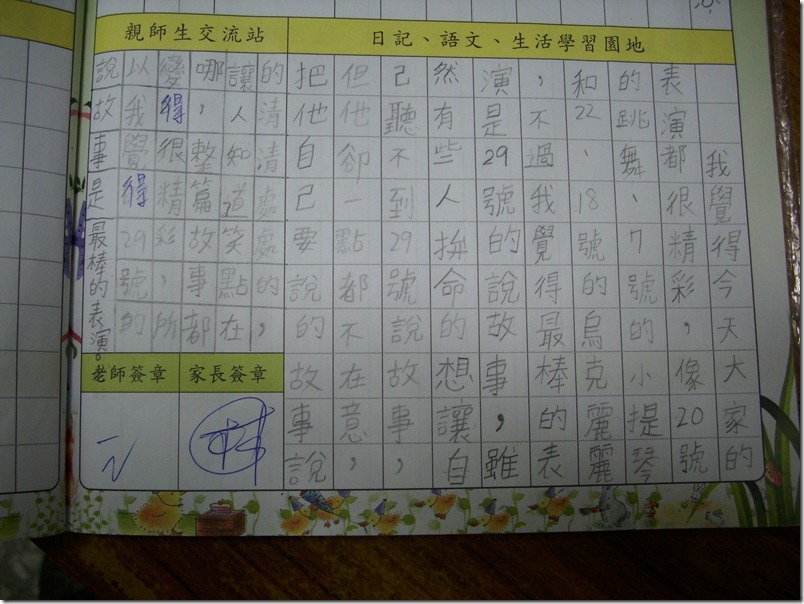 親師生交流站
日記、語文、生活學習園地
我覺得今天大家的
表演都很精彩，像20號
的跳舞、7號的小提琴
和22、18號的鳥克麗麗
，不過我覺得最棒的表
演是29號說的故事，雖
然有些人拚命的想讓自
己聽不到29號說故事，
但他卻一點都不在意，
把他自己要說的故事說
的清清處處的，
讓人知道笑點在
哪，整篇故事都
變得很精彩，所
以我覺得29號的
說故事是最棒的表演。
老師簽章
家長簽章
林